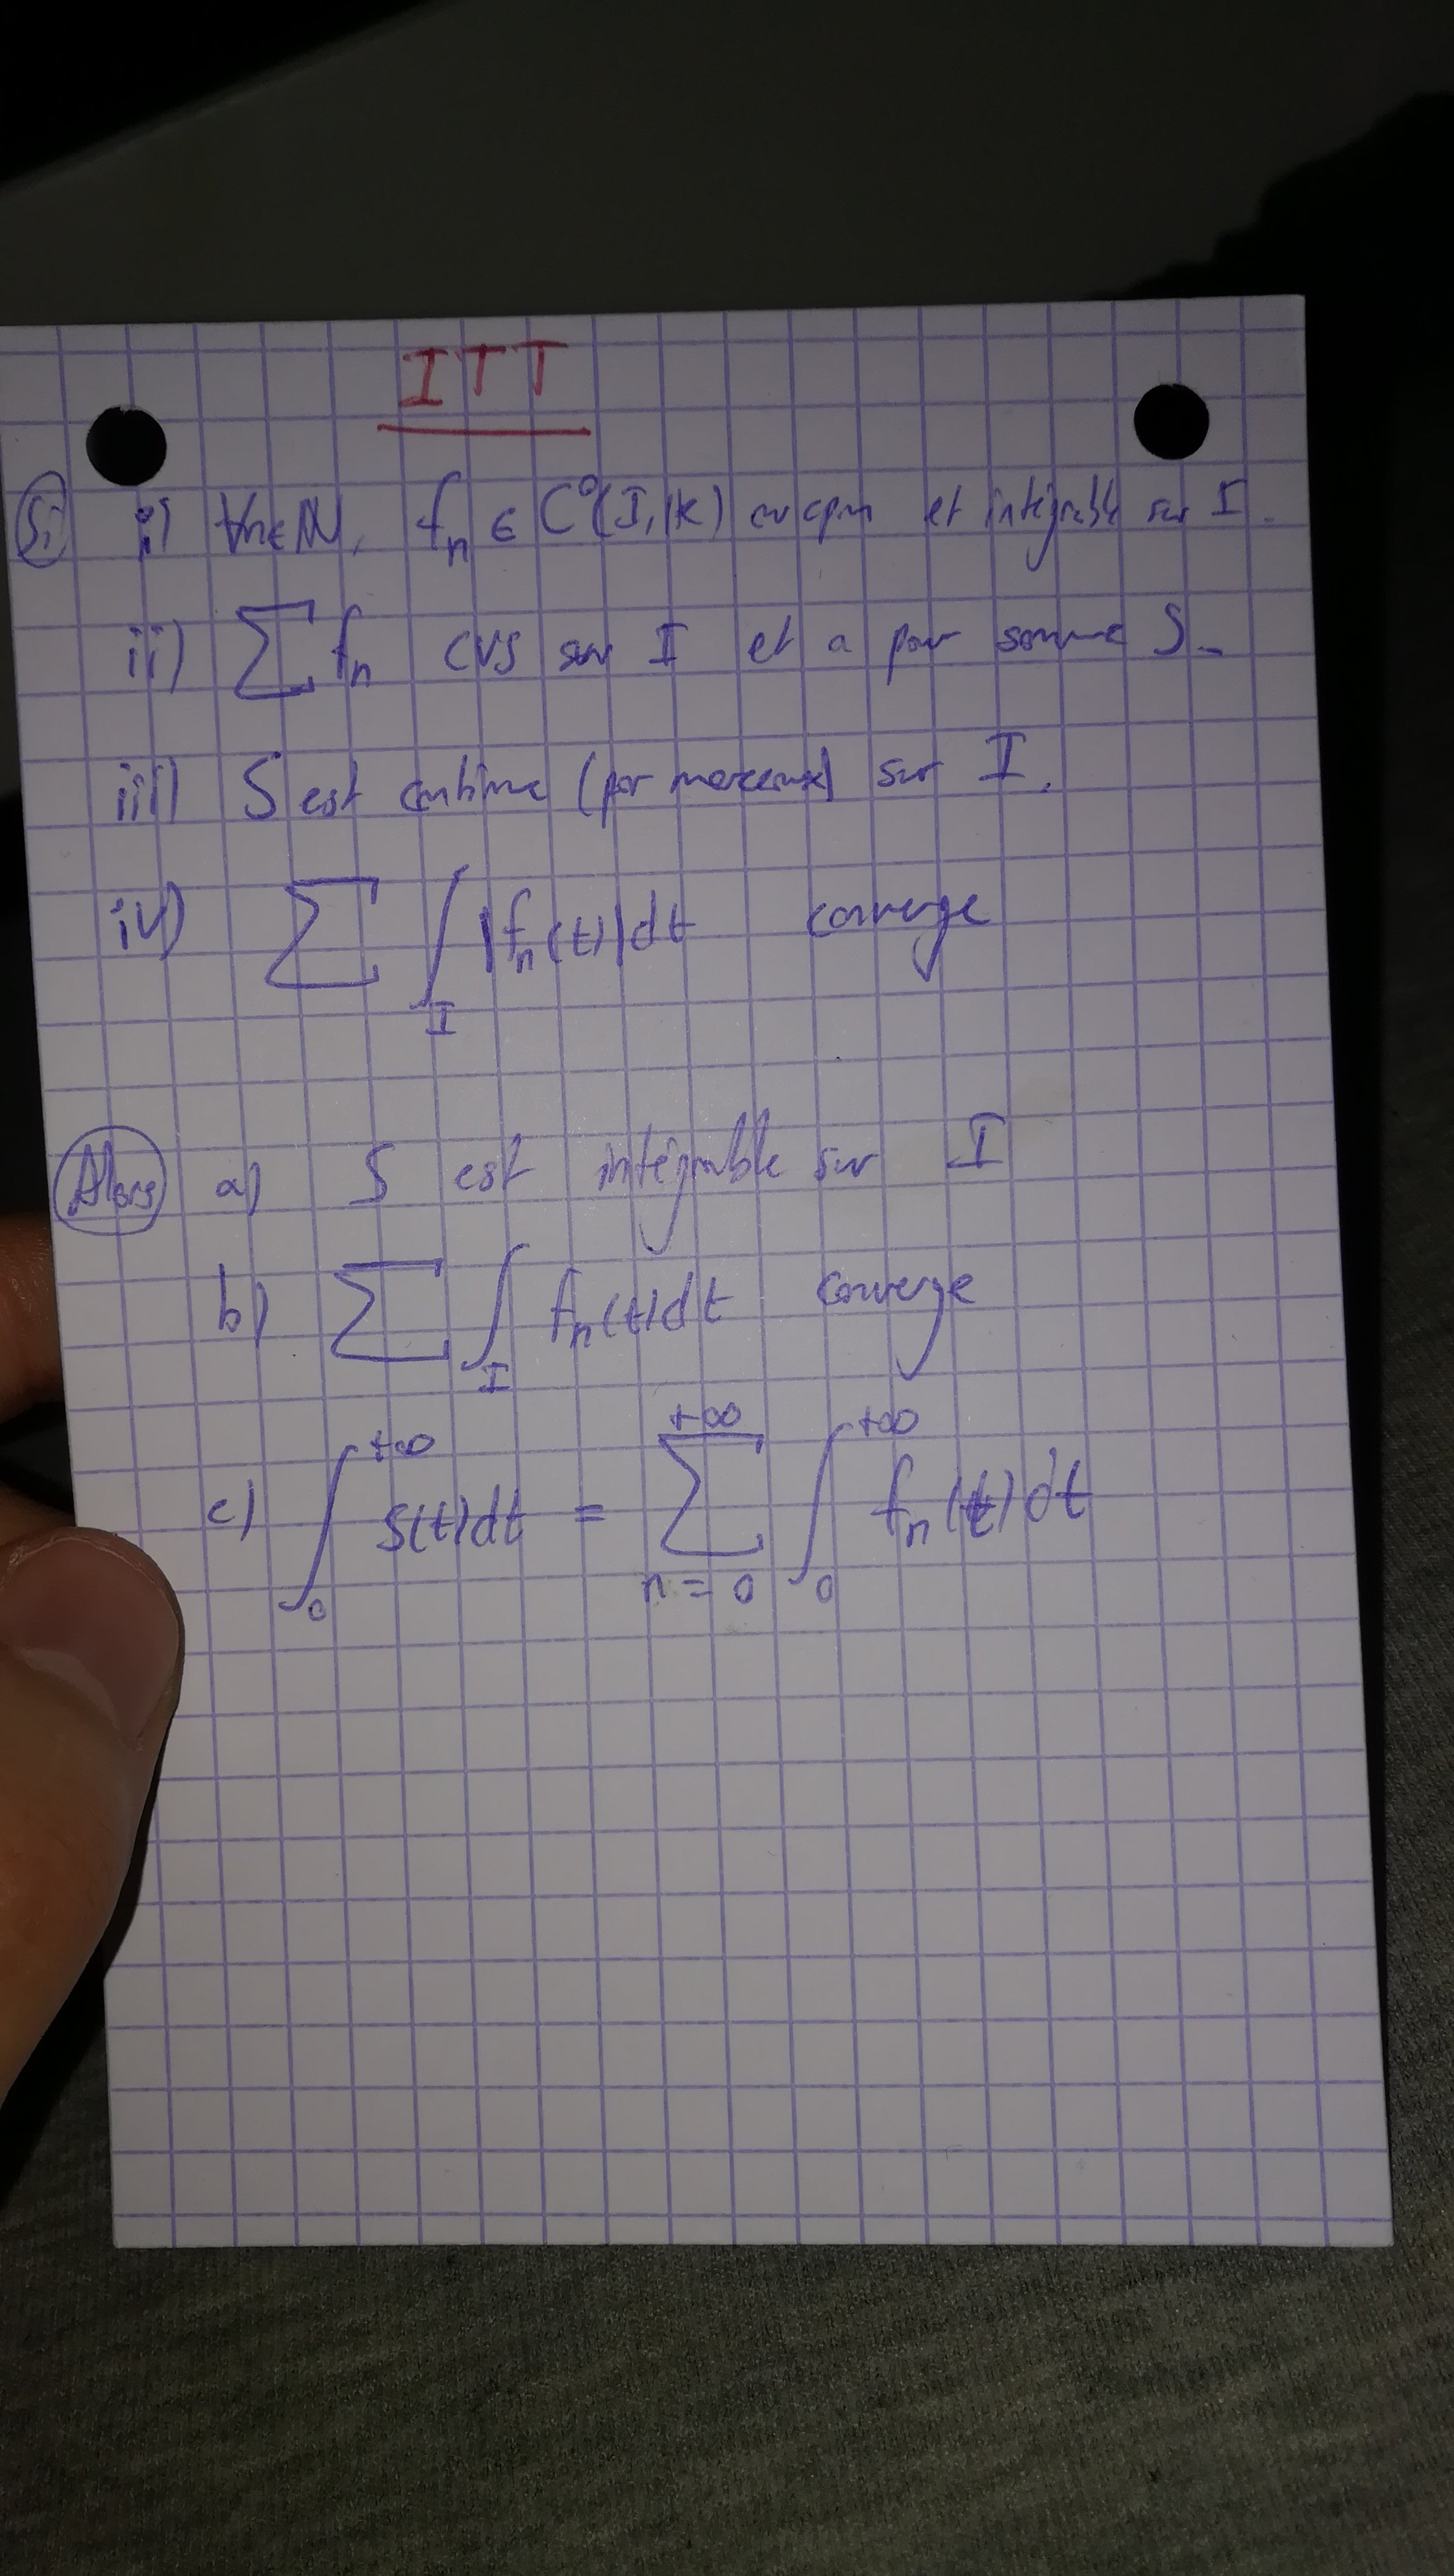 ITT
Si i) ∀n∈ℕ, fₙ ∈ C⁰(I,𝕂) ou cpm et intégrable sur I.
ii) ∑ fₙ CVS sur I et a pour somme S.
iii) S est continue (par morceaux) sur I.
iv) ∑ ∫_I |fₙ(t)|dt converge
Alors a) S est intégrable sur I
b) ∑ ∫_I fₙ(t)dt converge
c) ∫₀^{+∞} S(t)dt = ∑_{n=0}^{+∞} ∫₀^{+∞} fₙ(t)dt